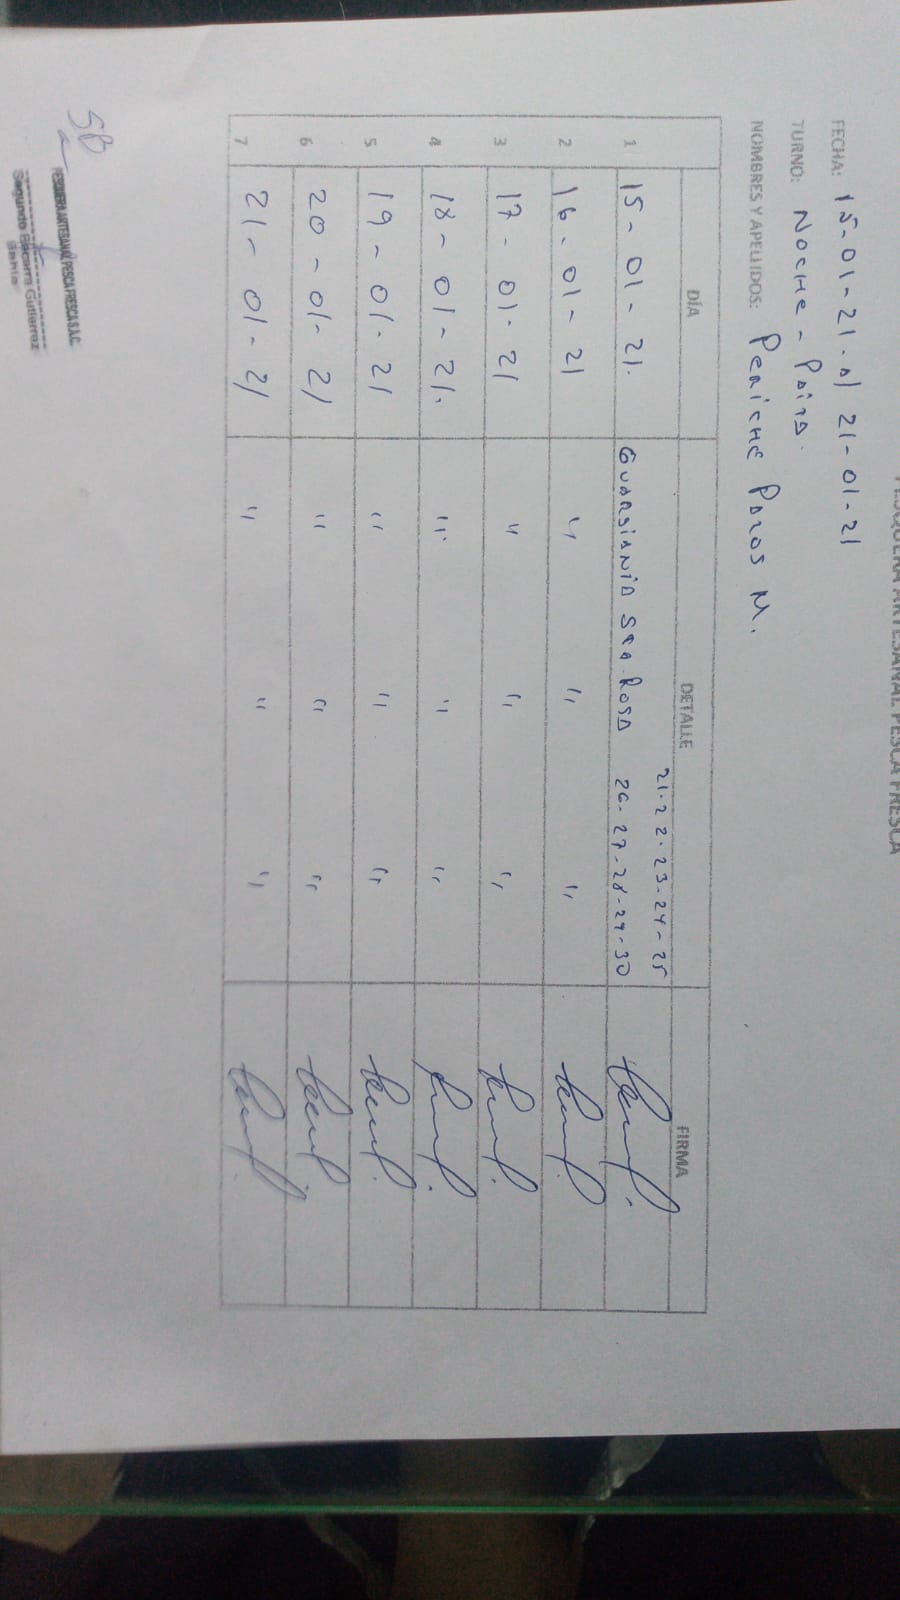 PESQUERA ARTESANAL PESCA FRESCA
FECHA: 15-01-21. al 21-01-21
TURNO: NOCHE - PAITA.
NOMBRES Y APELLIDOS: PERICHE PAZOS M.
DÍA DETALLE FIRMA
21-22-23-24-25
1 15-01-21. GUARDIANIA STA. ROSA 26-27-28-29-30
2 16-01-21 " " "
3 17-01-21 " " "
4 18-01-21. " " "
5 19-01-21 " " "
6 20-01-21 " " "
7 21-01-21 " " "
SB
PESQUERA ARTESANAL PESCA FRESCA S.A.C.
Segundo Gutierrez
Bahía